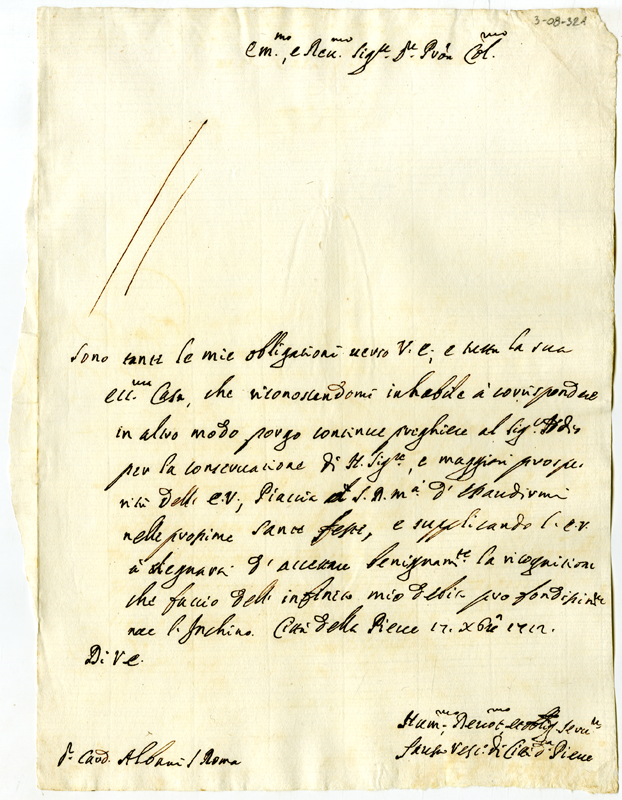 3-08-321
Em.mo, e Reu.mo Sig.re Sr. Prôn Col.mo
Sono tante le mie obligationi uerso V. E; e tutta la sua
Ecc.ma Casa, che riconoscendomi inhabile à corrispondere
in altro modo porgo continue preghiere al Sig.r Iddio
per la conseruatione di N. Sig.re, e maggiori prospe
rità dell' E. V; Piaccia à S. D. M.à d' esaudirmi
nelle prossime Sante feste, e supplicando l. E. V.
à degnarsi d' accettare benignam.te la ricognitione
che faccio dell' infinito mio debito profondissim.te
me l' Inchino. Città della Pieue 17. Xbre 1712.
Di V E.
Hum.mo, Deuot.mo, et oblig Seru.re
Vesc: di Città d. Pieue
Sr. Card. Albani / Roma